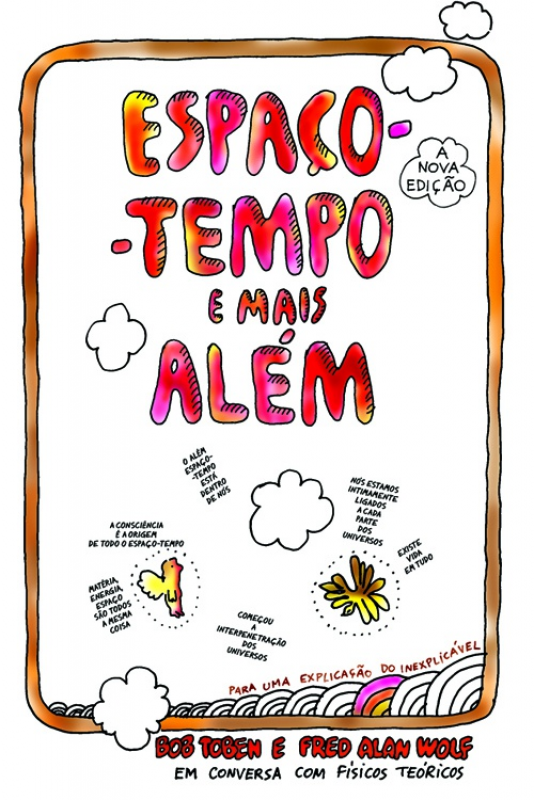 ESPAÇO-
-TEMPO
E MAIS
ALÉM
A
NOVA
EDIÇÃO
O ALÉM
ESPAÇO-
-TEMPO
ESTÁ
DENTRO
DE NÓS
NÓS ESTAMOS
INTIMAMENTE
LIGADOS
A CADA
PARTE
DOS
UNIVERSOS
A CONSCIÊNCIA
É A ORIGEM
DE TODO O ESPAÇO-TEMPO
EXISTE
VIDA
EM TUDO
MATÉRIA,
ENERGIA,
ESPAÇO
SÃO TODOS
A MESMA
COISA
COMEÇOU
A
INTERPENETRAÇÃO
DOS
UNIVERSOS
PARA UMA EXPLICAÇÃO DO INEXPLICÁVEL
BOB TOBEN E FRED ALAN WOLF
EM CONVERSA COM FÍSICOS TEÓRICOS